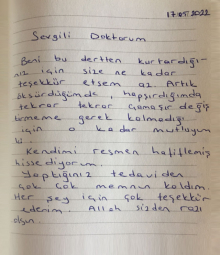 17.05.2022
Sevgili Doktorum
Beni bu dertten kurtardığı-
nız için size ne kadar
teşekkür etsem az. Artık
öksürdüğümde, hapşırdığımda
tekrar tekrar çamaşır değiş
tirmeme gerek kalmadığı
için o kadar mutluyum
ki.
Kendimi resmen hafiflemiş
hissediyorum.
Yaptığınız tedaviden
çok çok memnun kaldım.
Her şey için çok teşekkür
ederim. Allah sizden razı
olsun.